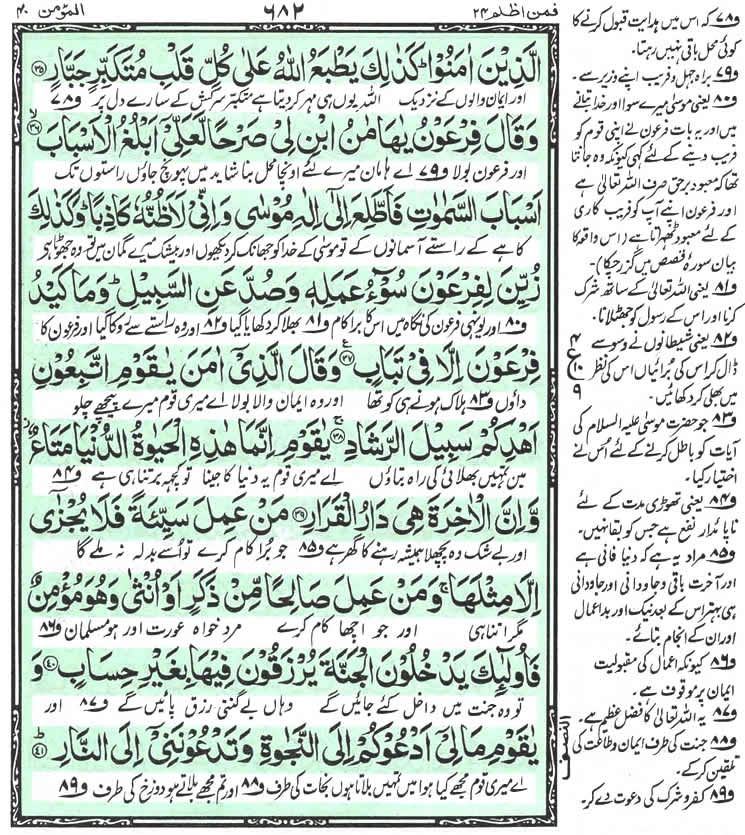 فمن اظلم ۲۴
۶۸۲
المؤمن ۴۰
الَّذِيْنَ اٰمَنُوْا ؕ كَذٰلِكَ يَطْبَعُ اللّٰهُ عَلٰى كُلِّ قَلْبِ مُتَكَبِّرٍ جَبَّارٍ ۳۵
اور ایمان والوں کے نزدیک اللہ یوں ہی مہر کردیتا ہے متکبر سرکش کے سارے دل پر و۷۸
وَقَالَ فِرْعَوْنُ يٰهَامٰنُ ابْنِ لِيْ صَرْحًا لَّعَلِّيْۤ اَبْلُغُ الْاَسْبَابَ ۳۶
اور فرعون بولا و۷۹ اے ہامان میرے لئے اونچا محل بنا شاید میں پہونچ جاؤں راستوں تک
اَسْبَابَ السَّمٰوٰتِ فَاَطَّلِعَ اِلٰۤى اِلٰهِ مُوْسٰى وَاِنِّيْ لَاَظُنُّهٗ كَاذِبًا ؕ وَكَذٰلِكَ
کاہے کے راستے آسمانوں کے تو موسٰی کے خدا کو جھانک کر دیکھوں اور بیشک میرے گمان میں تو وہ جھوٹا ہی
زُيِّنَ لِفِرْعَوْنَ سُوْٓءُ عَمَلِهٖ وَصُدَّ عَنِ السَّبِيْلِ ؕ وَمَا كَيْدُ
و۸۰ اور یونہی فرعون کی نگاہ میں اس کا برا کام و۸۱ بھلا کر دکھایا گیا و۸۲ اور وہ راستے سے روکا گیا اور فرعون کا
فِرْعَوْنَ اِلَّا فِيْ تَبَابٍ ۳۷ وَقَالَ الَّذِيْۤ اٰمَنَ يٰقَوْمِ اتَّبِعُوْنِ
داؤں و۸۳ ہلاک ہونے ہی کو تھا اور وہ ایمان والا بولا اے میری قوم میرے پیچھے چلو
اَهْدِكُمْ سَبِيْلَ الرَّشَادِ ۳۸ يٰقَوْمِ اِنَّمَا هٰذِهِ الْحَيٰوةُ الدُّنْيَا مَتَاعٌ
میں تمہیں بھلائی کی راہ بتاؤں اے میری قوم یہ دنیا کا جینا تو کچھ برتنا ہی ہے و۸۴
وَّاِنَّ الْاٰخِرَةَ هِيَ دَارُ الْقَرَارِ ۳۹ مَنْ عَمِلَ سَيِّئَةً فَلَا يُجْزٰۤى
اور بے شک وہ پچھلا ہمیشہ رہنے کا گھر ہے و۸۵ جو برا کام کرے تو اُسے بدلہ نہ ملے گا
اِلَّا مِثْلَهَا ۚ وَمَنْ عَمِلَ صَالِحًا مِّنْ ذَكَرٍ اَوْ اُنْثٰى وَهُوَ مُؤْمِنٌ
مگر اتنا ہی اور جو اچھا کام کرے مرد خواہ عورت اور ہو مسلمان و۸۶
فَاُولٰٓئِكَ يَدْخُلُوْنَ الْجَنَّةَ يُرْزَقُوْنَ فِيْهَا بِغَيْرِ حِسَابٍ ۴۰ وَ
تو وہ جنت میں داخل کئے جائیں گے وہاں بے گنتی رزق پائیں گے و۸۷ اور
يٰقَوْمِ مَا لِيْۤ اَدْعُوْكُمْ اِلَى النَّجٰوةِ وَتَدْعُوْنَنِيْۤ اِلَى النَّارِ ۴۱
اے میری قوم مجھے کیا ہوا میں تمہیں بلاتا ہوں نجات کی طرف و۸۸ اور تم مجھے بلاتے ہو دوزخ کی طرف و۸۹
و۷۸ کہ اس میں ہدایت قبول کرنے کا
کوئی محل باقی نہیں رہتا۔
و۷۹ براہ جہل و فریب اپنے وزیر سے۔
و۸۰ یعنی موسٰی میرے سوا اور خدا بتانے
میں اور یہ بات فرعون نے اپنی قوم کو
فریب دینے کے لئے کہی کیونکہ وہ جانتا
تھا کہ معبود برحق صرف اللہ تعالٰی ہے
اور فرعون اپنے آپ کو فریب کاری
کے لئے معبود ٹھہراتا ہے (اس واقعہ کا
بیان سورۂ قصص میں گزر چکا)۔
و۸۱ یعنی اللہ تعالٰی کے ساتھ شرک
کرنا اور اس کے رسول کو جھٹلانا۔
و۸۲ یعنی شیطانوں نے وسوسے
ڈال کر اس کی برائیاں اس کی نظر
میں بھلی کر دکھائیں۔
و۸۳ جو حضرت موسٰی علیہ السلام کی
آیات کو باطل کرنے کے لئے اُس نے
اختیار کیا۔
و۸۴ یعنی تھوڑی مدت کے لئے
ناپائدار نفع ہے جس کو بقا نہیں۔
و۸۵ مراد یہ ہے کہ دنیا فانی ہے
اور آخرت باقی و جاودانی اور جاودانی
ہی بہتر اس کے بعد نیک اور بد اعمال
اور ان کے انجام بتائے۔
و۸۶ کیونکہ اعمال کی مقبولیت
ایمان پر موقوف ہے۔
و۸۷ یہ اللہ تعالٰی کا فضل عظیم ہے۔
و۸۸ جنت کی طرف ایمان و طاعت کی
تلقین کرکے۔
و۸۹ کفر و شرک کی دعوت دے کر۔
۴
ع
۱۰
۹
النصف